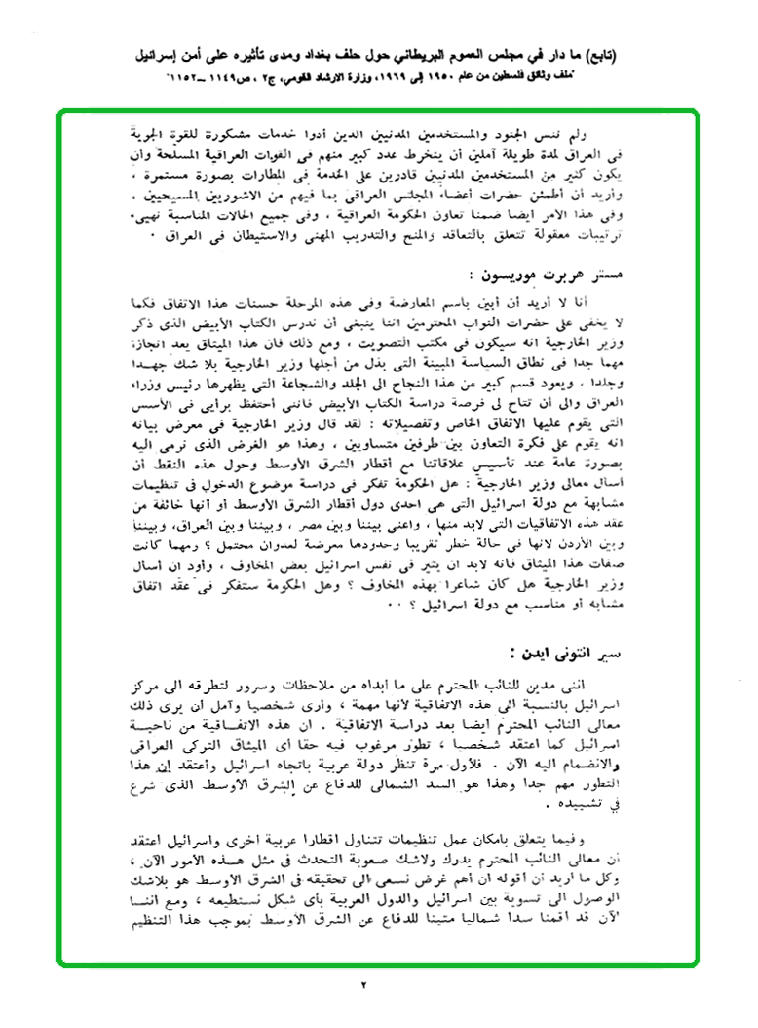 (تابع) ما دار في مجلس العموم البريطاني حول حلف بغداد ومدى تأثيره على أمن إسرائيل
"ملف وثائق فلسطين من عام ١٩٥٠ إلى ١٩٦٩، وزارة الارشاد القومي، ج٢ ، ص١١٤٩ــ١١٥٢"
ولم ننس الجنود والمستخدمين المدنيين الدين أدوا خدمات مشكورة للقوة الجوية
فى العراق لمدة طويلة آملين أن ينخرط عدد كبير منهم فى القوات العراقية المسلحة وأن
يكون كثير من المستخدمين المدنيين قادرين على الخدمة فى المطارات بصورة مستمرة ،
وأريد أن أطمئن حضرات أعضاء المجلس العراقى بما فيهم من الاشوريين المسيحيين .
وفى هذا الامر أيضا ضمنا تعاون الحكومة العراقية ، وفى جميع الحالات المناسبة نهيىء
ترتيبات معقولة تتعلق بالتعاقد والمنح والتدريب المهنى والاستيطان فى العراق .
مستر هربرت موريسون :
أنا لا أريد أن أبين باسم المعارضة وفى هذه المرحلة حسنات هذا الاتفاق فكما
لا يخفى على حضرات النواب المحترمين اننا ينبغى أن ندرس الكتاب الأبيض الذى ذكر
وزير الخارجية انه سيكون فى مكتب التصويت ، ومع ذلك فان هذا الميثاق يعد انجازا
مهما جدا فى نطاق السياسة المبينة التى بذل من أجلها وزير الخارجية بلا شك جهـدا
وجلدا . ويعود قسم كبير من هذا النجاح الى الجلد والشجاعة التى يظهرها رئيس وزراء
العراق والى أن تتاح لى فرصة دراسة الكتاب الأبيض فانني أحتفظ برأيى فى الأسس
التى يقوم عليها الاتفاق الخاص وتفصيلاته : لقد قال وزير الخارجية فى معرض بيانه
انه يقوم على فكرة التعاون بين طرفين متساويين ، وهذا هو الغرض الذى نرمى اليه
بصورة عامة عند تأسيس علاقاتنا مع أقطار الشرق الأوسط وحول هذه النقط أن
أسأل معالى وزير الخارجية : هل الحكومة تفكر فى دراسة موضوع الدخول فى تنظيمات
مشابهة مع دولة اسرائيل التى هى احدى دول أقطار الشرق الأوسط أو أنها خائفة من
عقد هذه الاتفاقيات التى لابد منها ، واعنى بيننا وبين مصر ، وبيننا وبين العراق، وبيننا
وبين الأردن لانها فى حالة خطر تقريبا وحدودها معرضة لعدوان محتمل ؟ ومهما كانت
صفات هذا الميثاق فانه لابد ان يثير فى نفس اسرائيل بعض المخاوف ، وأود ان أسأل
وزير الخارجية هل كان شاعرا بهذه المخاوف ؟ وهل الحكومة ستفكر فى عقد اتفاق
مشابه أو مناسب مع دولة اسرائيل ؟ ..
سير انتونى ايدن :
اننى مدين للنائب المحترم على ما أبداه من ملاحظات وسرور لتطرقه الى مركز
اسرائيل بالنسبة الى هذه الاتفاقية لأنها مهمة ، وأرى شخصيا وآمل أن يرى ذلك
معالى النائب المحترم أيضا بعد دراسة الاتفاقية . ان هذه الاتفـاقية من ناحيـة
اسرائيل كما اعتقد شخصيا ، تطور مرغوب فيه حقا أى الميثاق التركى العراقى
والانضمام اليه الآن . فلأول مرة تنظر دولة عربية باتجاه اسرائيل وأعتقد إن هذا
التطور مهم جدا وهذا هو السد الشمالى للدفاع عن الشرق الأوسط الذى شرع
في تشييده .
وفيما يتعلق بامكان عمل تنظيمات تتناول اقطارا عربية اخرى واسرائيل أعتقد
أن معالى النائب المحترم يدرك ولاشك صعوبة التحدث فى مثل هـذه الأمور الآن ،
وكل ما أريد أن أقوله ان أهم غرض نسعى الى تحقيقه فى الشرق الأوسط هو بلاشك
الوصول الى تسوية بين اسرائيل والدول العربية بأى شكل نستطيعه ، ومع اننـا
الآن قد اقمنا سدا شماليا متينا للدفاع عن الشرق الأوسط بموجب هذا التنظيم
٢